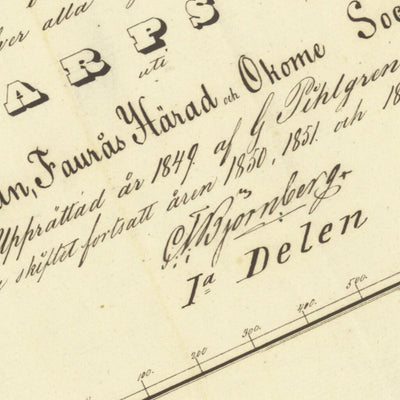 ver alla
ARPS
uti
än, Faurås Härad och Okome Soc
Upprättad år 1849. af G Pihlgren
skiftet fortsatt åren 1850, 1851. och 18
G. F. Björnberg.
Ia Delen
100. 200 300. 400 500.